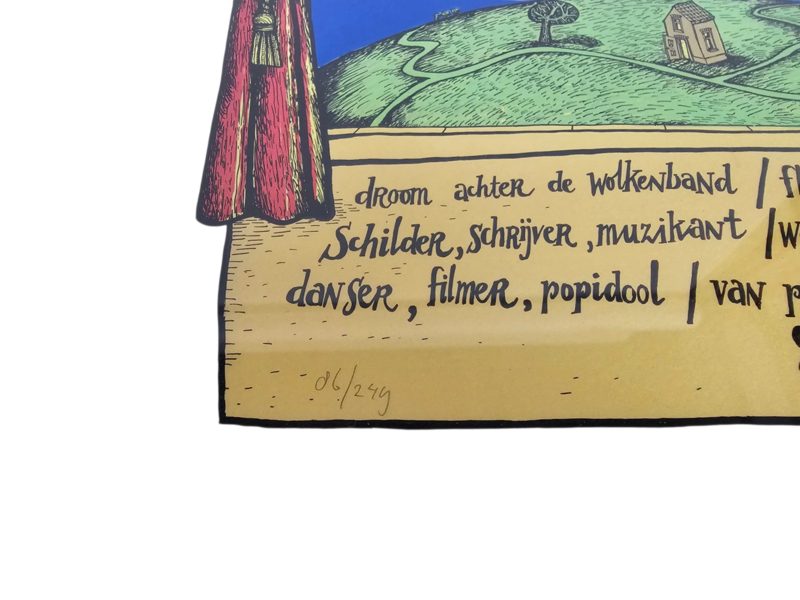 droom achter de wolkenband / fl
Schilder, schrijver, muzikant / w
danser, filmer, popidool / van p
86/249